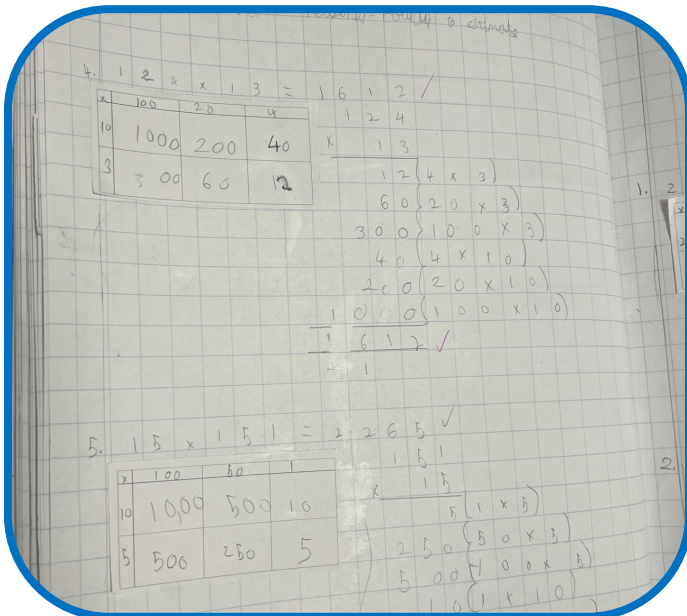 to estimate
4. 124 x 13 = 1612 ✓
x 100 20 4
10 1000 200 40
3 300 60 12
124
x 13
12 (4 x 3)
60 (20 x 3)
300 (100 x 3)
40 (4 x 10)
200 (20 x 10)
1000 (100 x 10)
1612 ✓
1
5. 15 x 151 = 2265 ✓
x 100 50 1
10 10,00 500 10
5 500 250 5
151
x 15
5 (1 x 5)
250 (50 x 5)
500 (100 x 5)
10 (1 x 10)
1. 2
x
2
2.